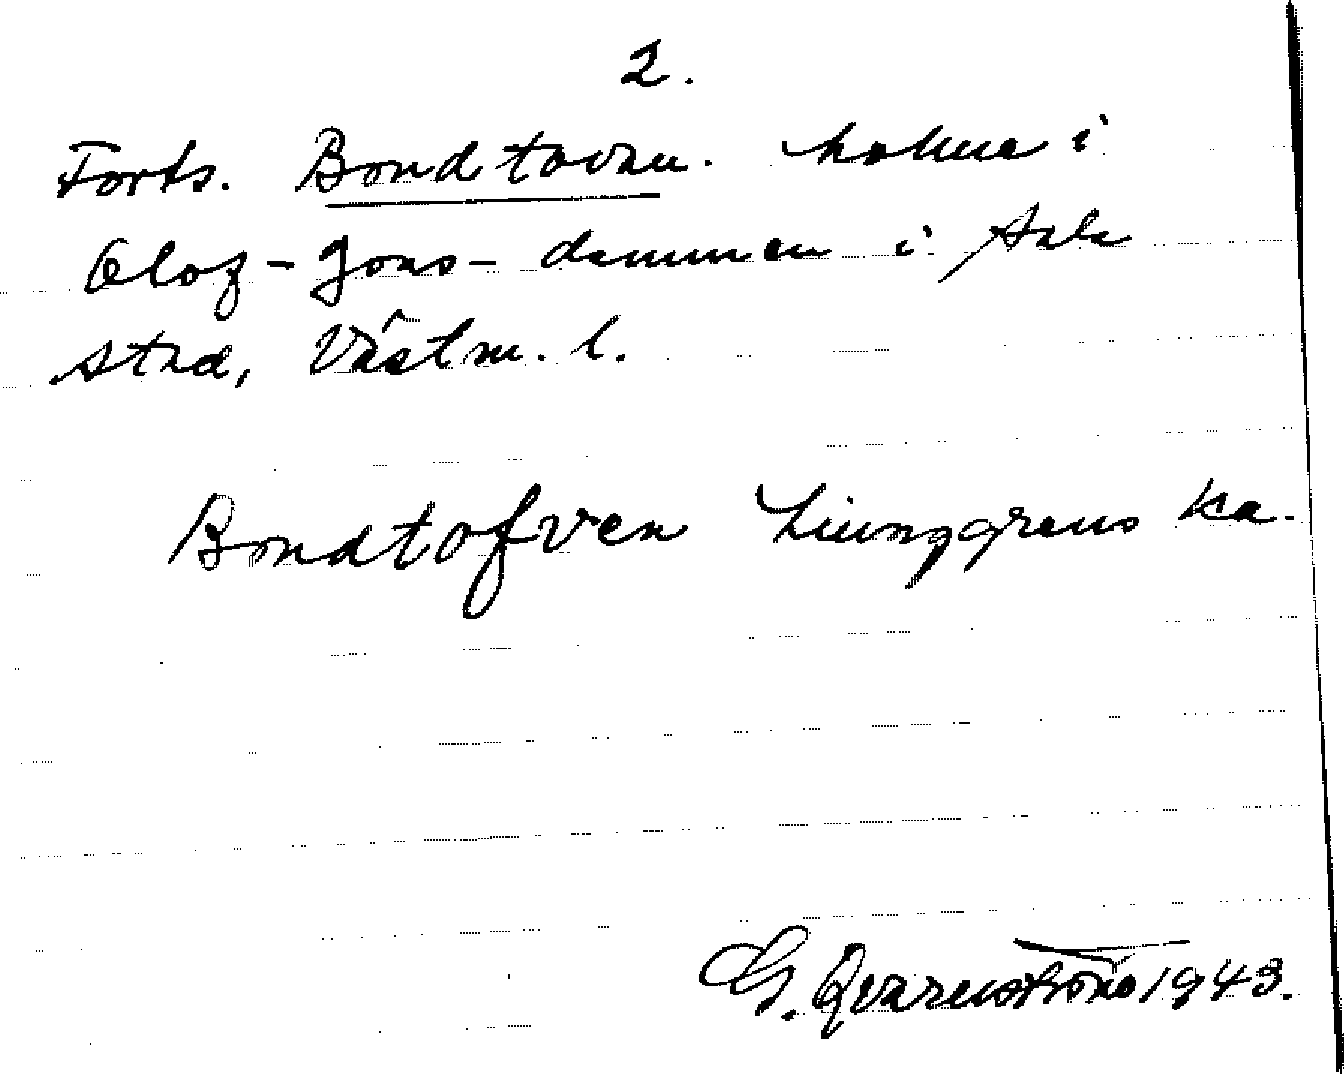 2.
Forts. Bondtovan. holme i
Olof-Jons-dammen i Sala
stad, Västm. l.
Bondtofven Liunggrens ka.
G. Qvarnström 1943.